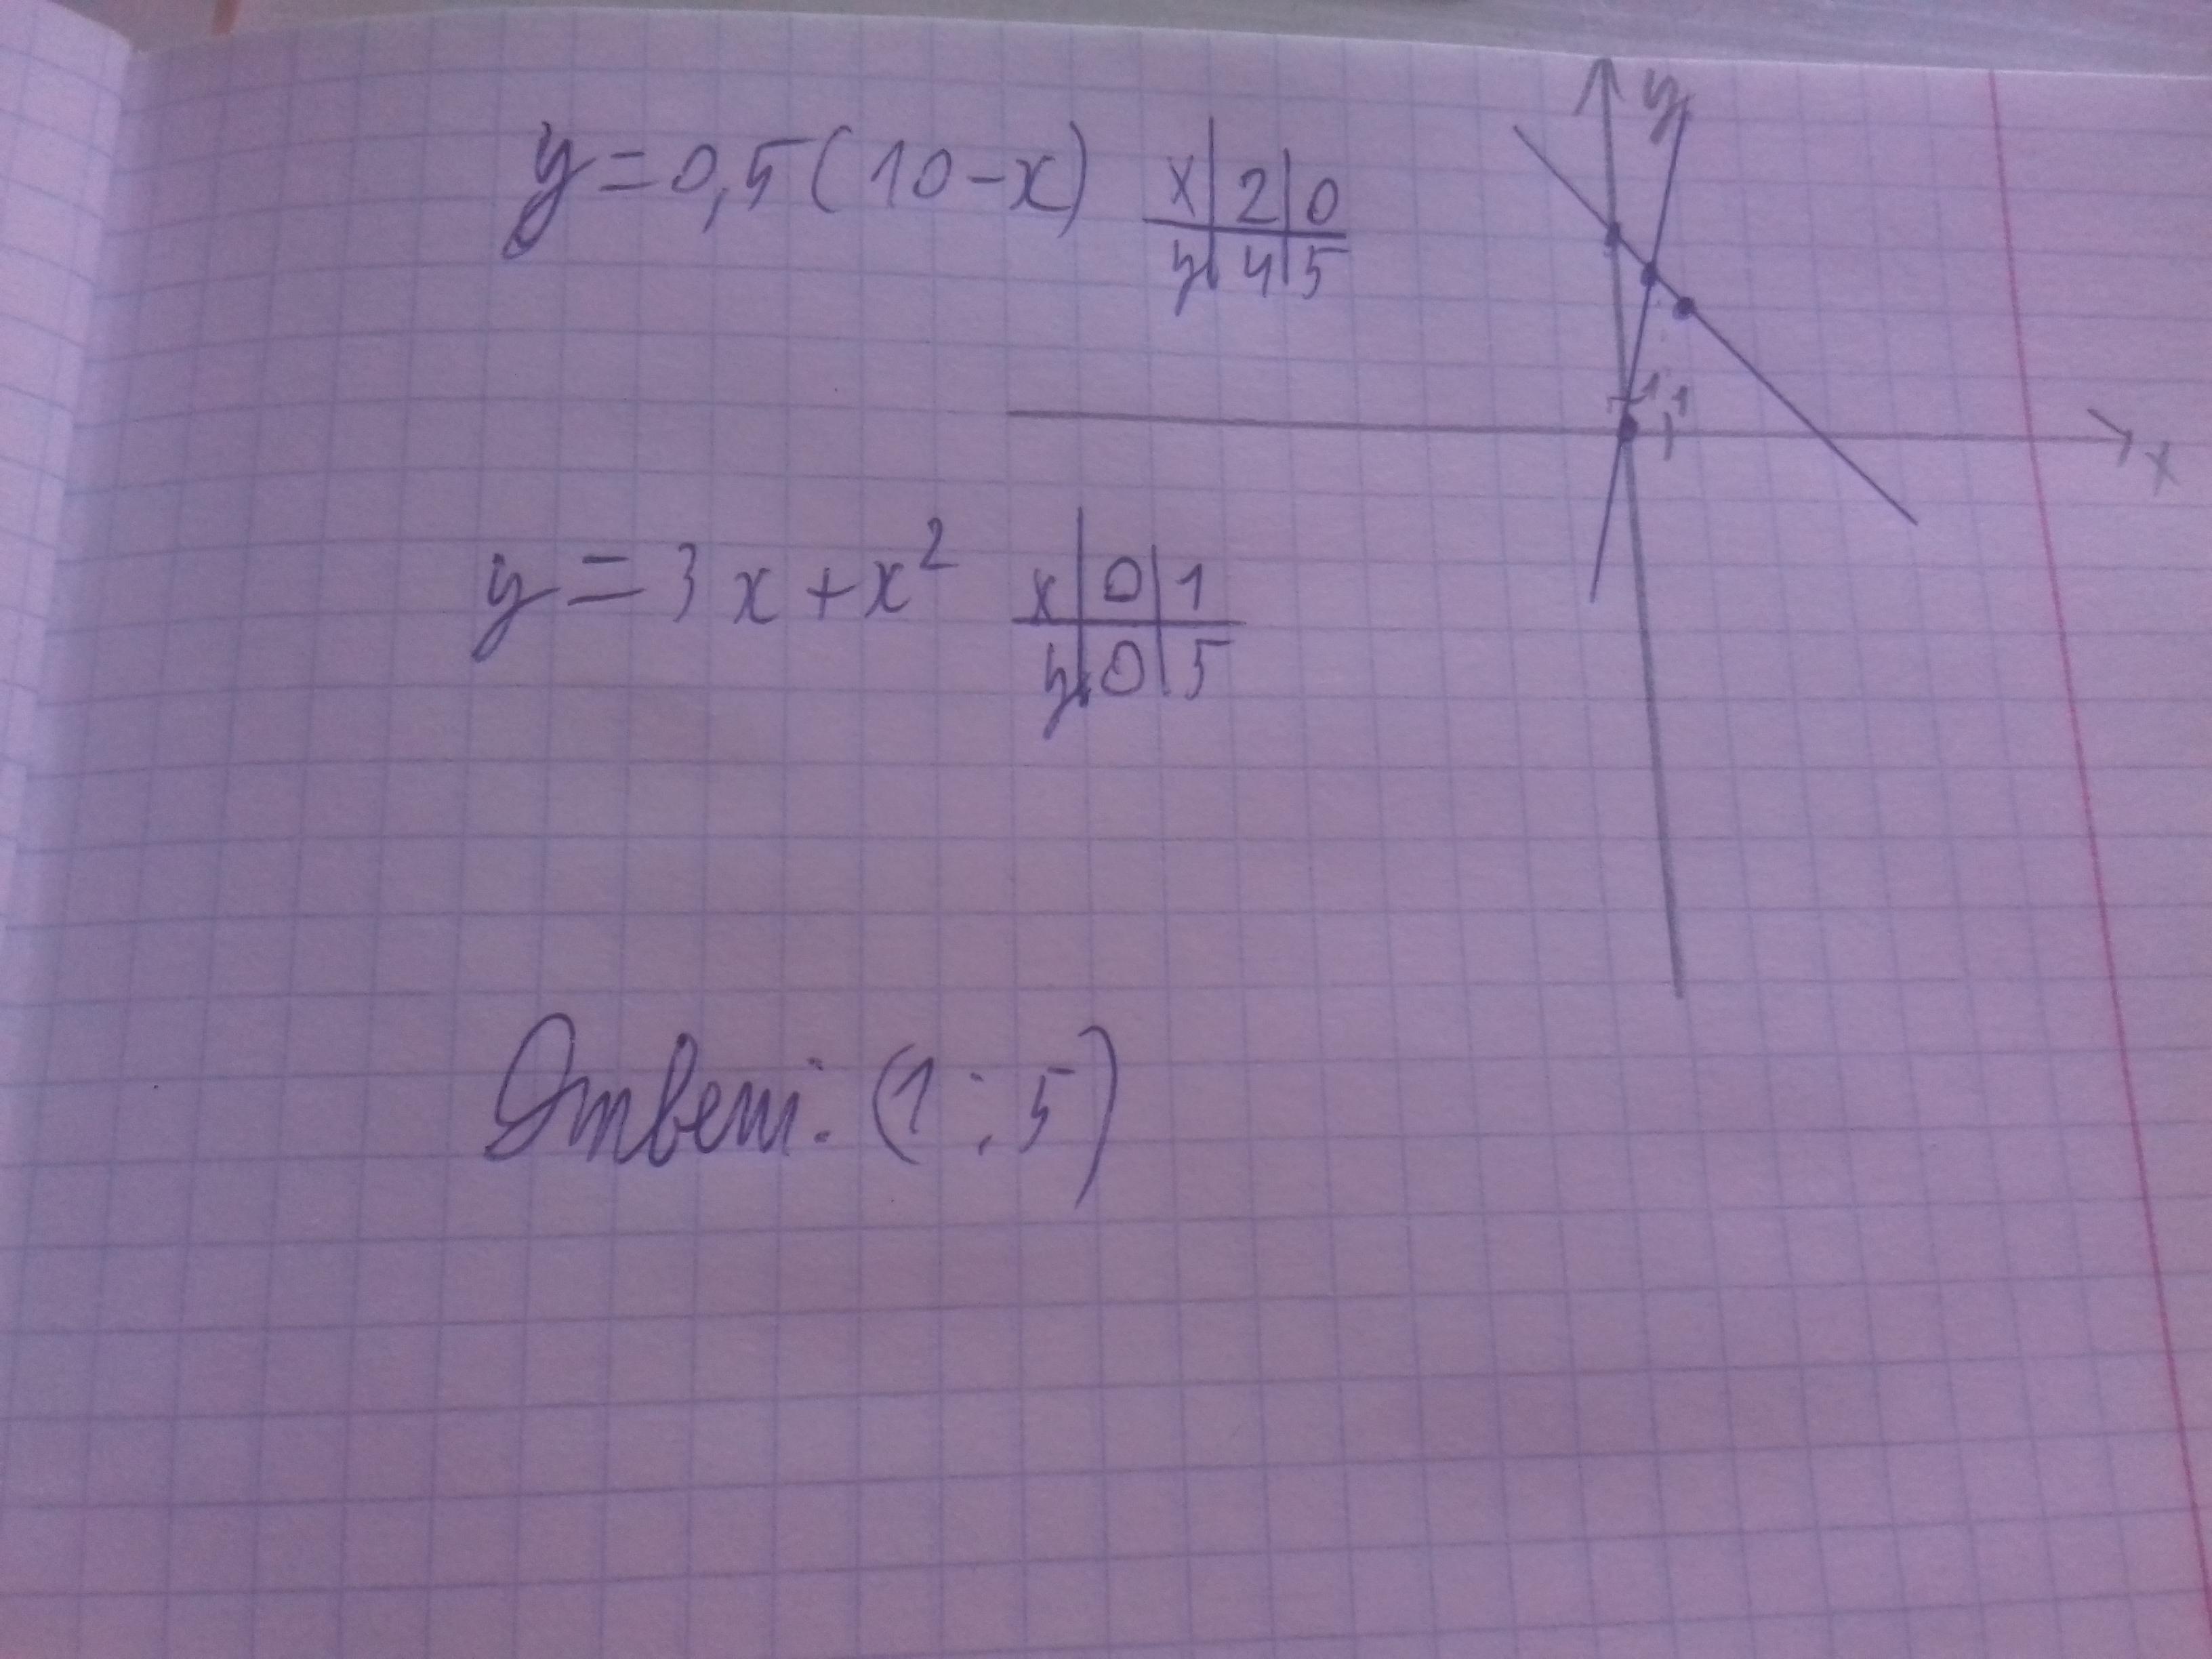 y = 0,5 (10 - x) x | 2 | 0
y | 4 | 5
y = 3x + x² x | 0 | 1
y | 0 | 5
Ответ: (1 ; 5)
y
1 1
x